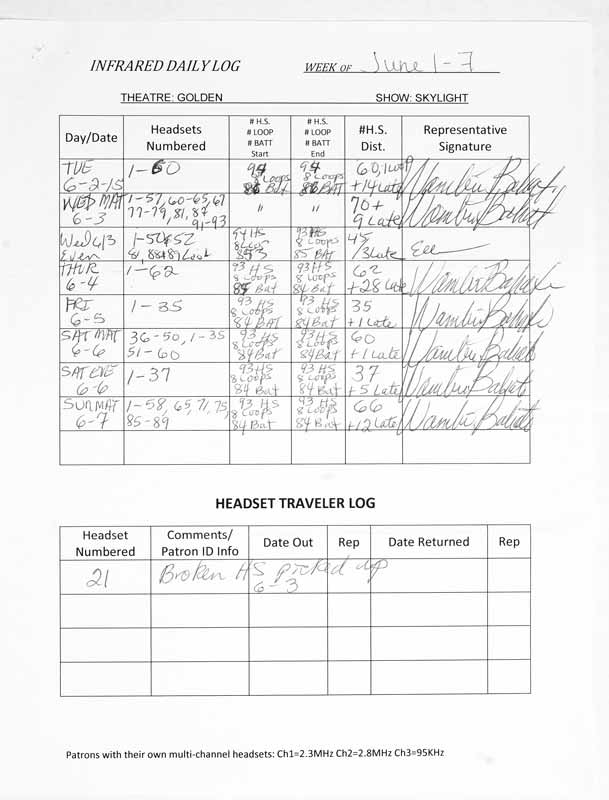 INFRARED DAILY LOG WEEK OF June 1-7
THEATRE: GOLDEN SHOW: SKYLIGHT
Day/Date Headsets Numbered # H.S. # LOOP # BATT Start # H.S. # LOOP # BATT End #H.S. Dist. Representative Signature
TUE 6-2-15 1-60 94 8 Loops 86 Bat 94 8 Loops 86 BAT 60, 1 Loop +14 Late
WED MAT 6-3 1-57, 60-65, 67 77-79, 81, 87 91-93 " " 70+ 9 Late
Wed 6/3 Even 94 HS 93 HS 8 Loops 85 BAT 45 /3 Late
THUR 6-4 1-62 93 HS 8 Loops 85 Bat 93 HS 8 Loops 84 Bat 62 +28 Late
FRI 6-5 1-35 93 HS 8 Loops 84 BAT 93 HS 8 Loops 84 Bat 35 +1 Late
SAT MAT 6-6 36-50, 1-35 51-60 93 HS 8 Loops 84 Bat 93 HS 8 Loops 84 Bat 60 +1 Late
SAT EVE 6-6 1-37 93 HS 8 Loops 84 Bat 93 HS 8 Loops 84 Bat 37 +5 Late
SUN MAT 6-7 1-58, 65, 71, 75, 85-89 93 HS 8 Loops 84 Bat 93 HS 8 Loops 84 Bat 66 +12 Late
HEADSET TRAVELER LOG
Headset Numbered Comments/ Patron ID Info Date Out Rep Date Returned Rep
21 Broken HS picked up 6-3
Patrons with their own multi-channel headsets: Ch1=2.3MHz Ch2=2.8MHz Ch3=95KHz